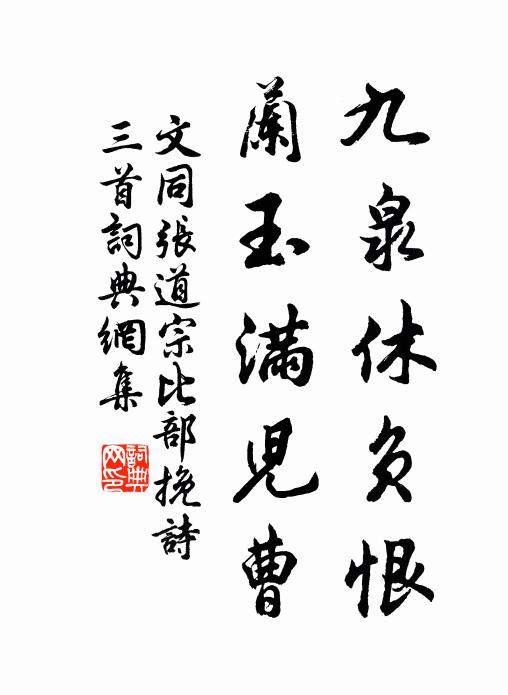 九泉休負恨
蘭玉滿兒曹
文同張道宗比部挽詩
三首詞典網集
詞典网印